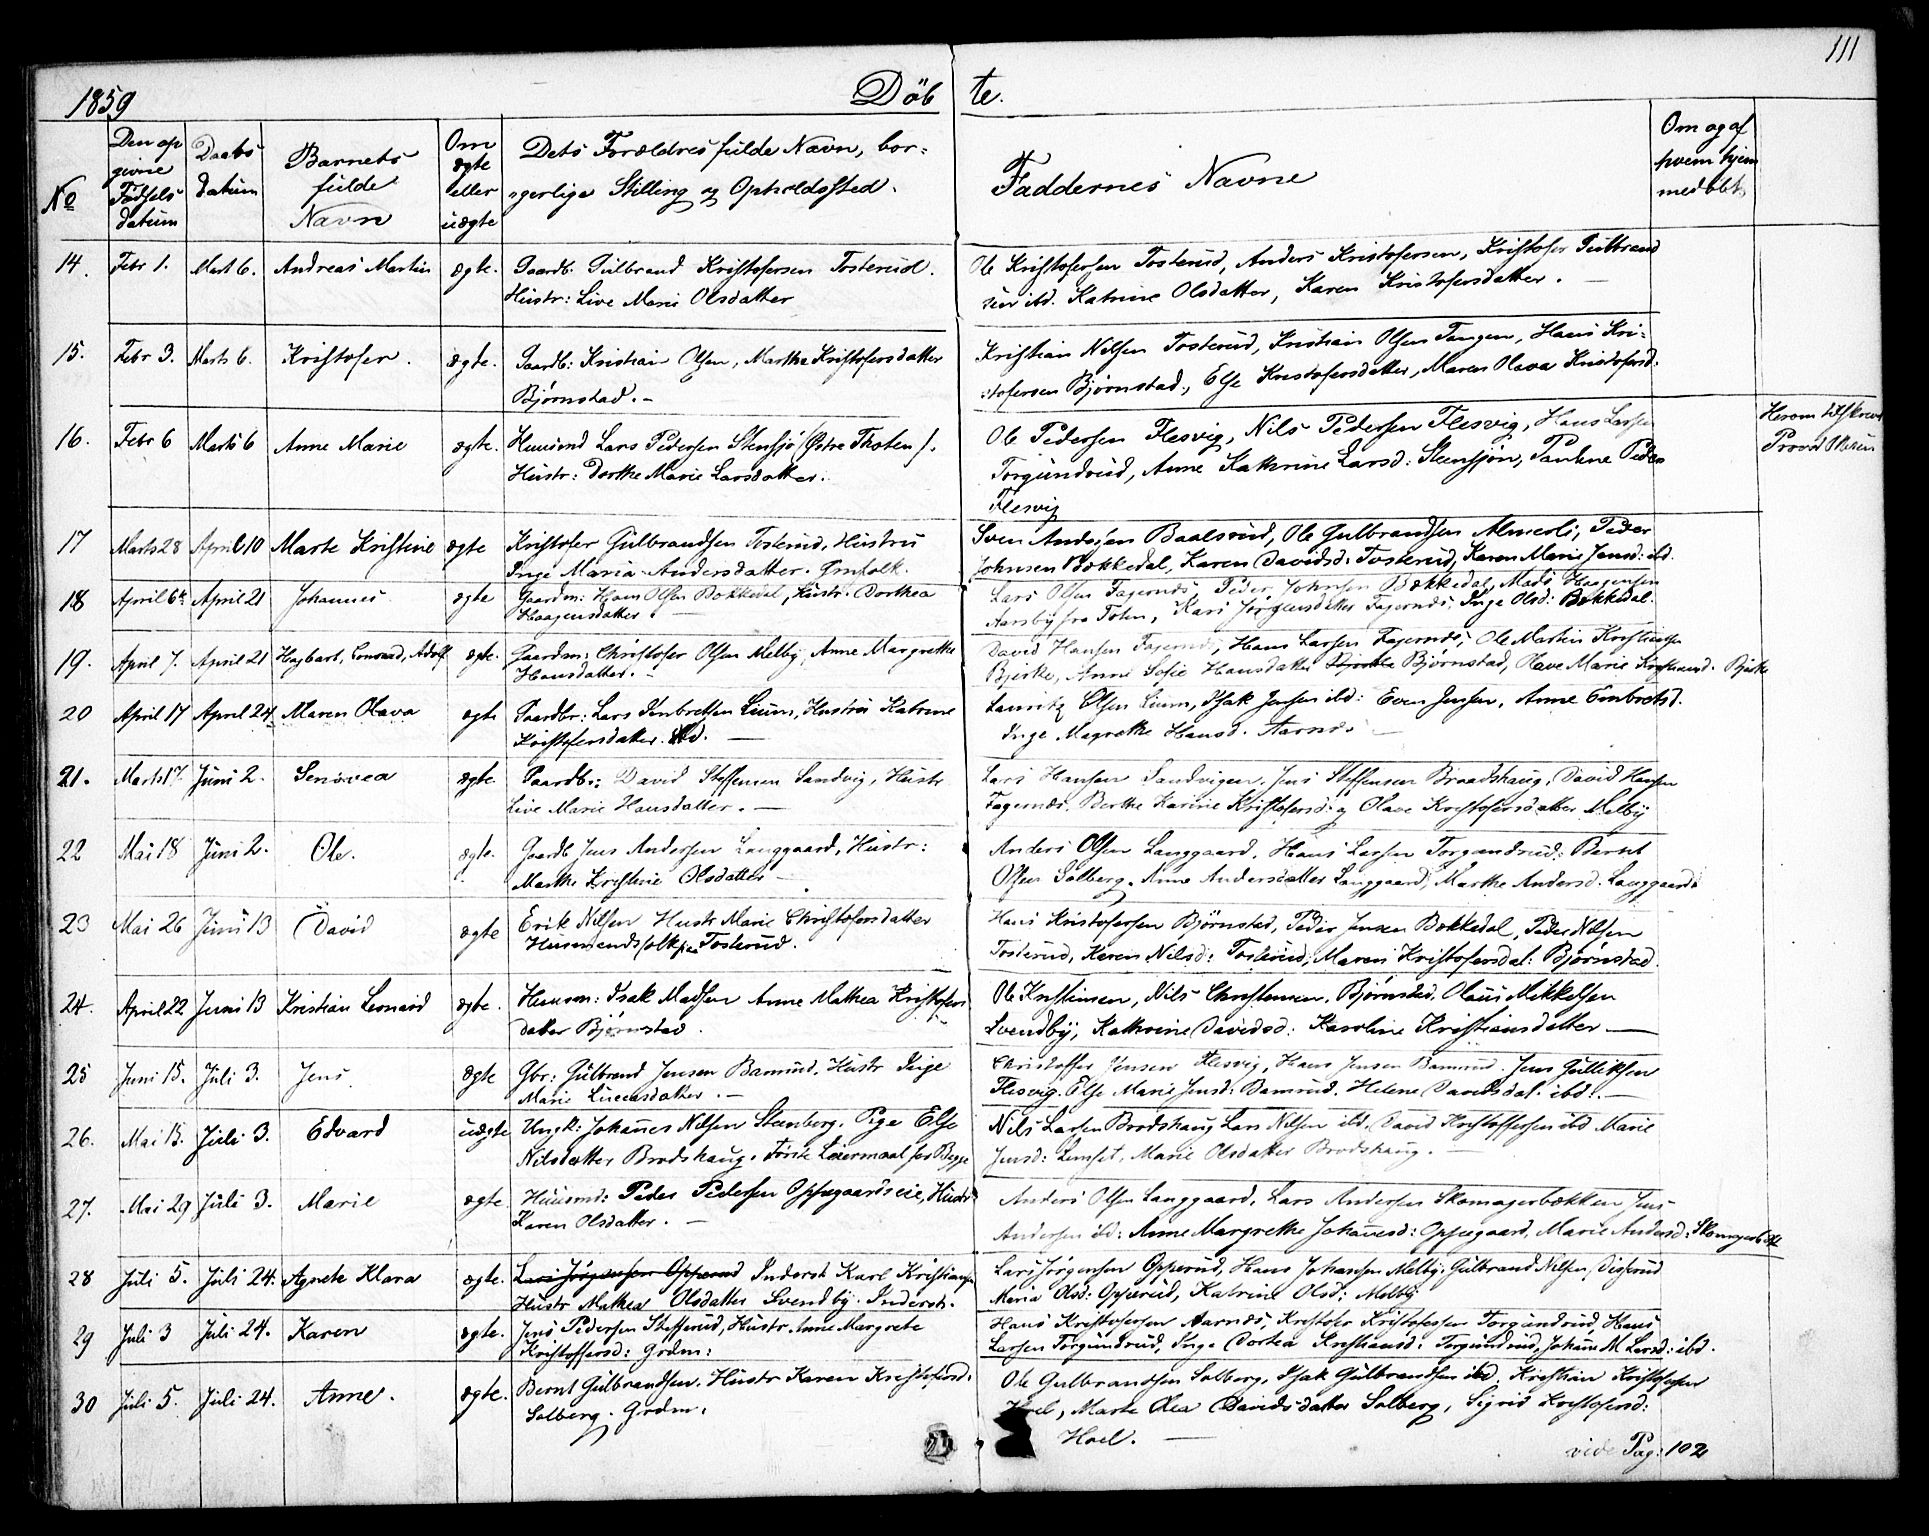 111
1859 Döb te.
No
Den op
givne
Fødsels
datum
Daabs
datum
Barnets
fulde
Navn
Om
ægte
eller
uægte
Dets Forældres fulde Navn, bor=
gerlige Stilling og Opholdssted.
Faddernes Navne
Om og af
hvem hjem
medøbt.
14. Febr 1. Mart 6. Andreas Martin ægte. Gaardb. Gulbrand Kristofersen Tosterud. Ole Kristofersen Tosterud, Anders Kristofersen, Kristofer Gulbrand
Hustr: Live Marie Olsdatter sen ibd. Katrine Olsdatter, Karen Kristofersdatter.
15. Febr 3. Marts 6. Kristofer. ægte. Gaardb: Kristian Olsen, Marthe Kristofersdatter Kristian Nilsen Tosterud, Kristian Olsen Tangen, Hans Kri=
Bjørnstad. stofersen Bjørnstad, Else Kristofersdatter, Maren Olava Kristofersd.
16. Febr 6 Marts 6 Anne Marie ægte. Huusmd Lars Pedersen Stensjø (Østre Thoten). Ole Pedersen Flesvig, Nils Pedersen Flesvig, Hans Larsen Herom tilskrevet
Hustr: Dorthe Marie Larsdatter. Torgundrud, Anne Kathrine Larsd: Steensjøn, Pauline Peders Provst
Flesvig
17 Marts 28 April 10 Marte Kristine ægte Kristofer Gulbrandsen Tosterud, Hustru Sven Andersen Baalsrud, Ole Gulbrandsen Almerli, Peder
Inge Maria Andersdatter. Johnsen Bækkedal, Karen Davidsd: Tosterud, Karen Marie Jensd: ibd.
18 April 6te April 21 Johannes ægte Gaardm: Hans Olsen Bækkedal, Hustr. Dorthea Lars Olsen Fagernæs, Peder Johnsen Bækkedal, Mads Haagensen
Haagensdatter. Aarsby fra Toten, Kari Jørgensdatter Fagernæs, Inge Olsd: Bækkedal.
19. April 7. April 21 Hagbart, Conrad, Adolf ægte. Gaardm: Christofer Olsen Melby, Anne Margrethe David Hansen Fagernæs, Hans Larsen Fagernæs, Ole Martin Kristiansen
Hansdatter. Bjerke, Anne Sofie Hansdatter Bjørnstad, Olave Marie Kristiansd. Bjerke
20 April 17 April 24 Maren Olava ægte Gaardbr: Lars Embretsen Lium, Hustru Katrine Lauritz Olsen Lium, Isak Jensen ibd: Even Jensen, Anne Embretsd.
Kristofersdatter. Inge Magrethe Hansd. Aarnæs
21. Marts 17. Juni 2. Senovea ægte. Gaardbr: David Steffensen Sandvig, Hustr Lars Hansen Sandvigen, Jens Steffensen Braadshaug, David Hansen
Live Marie Hansdatter. Fagernæs. Berthe Karine Kristofersd. og Olave Kristofersdatter Melby
22 Mai 18 Juni 2. Ole. ægte. Gaardb Jens Andersen Langgaard, Hustr: Anders Olsen Langgaard, Hans Larsen Torgundrud, Bernt
Marthe Kristine Olsdatter Olsen Solberg, Anne Andersdatter Langgaard, Marthe Andersd. Langgaard
23 Mai 26 Juni 13 David ægte Erik Nilsen Hustr Marie Christofersdatter Hans Kristofersen Bjørnstad, Peder Jensen Bækkedal, Peder Nilsen
Huusmandsfolk paa Tosterud. Tosterud, Karen Nilsd: Tosterud, Maren Kristofersdat: Bjørnstad.
24. April 22 Juni 13 Kristian Leonard ægte. Huusm: Isak Madsen Anne Mathea Kristofers Ole Kristiansen, Nils Christensen, Bjørnstad, Olaus Mikkelsen
datter Bjørnstad. Svendby, Kathrine Davidsd: Karoline Kristiansdatter
25 Juni 15. Juli 3. Jens ægte Gbr: Gulbrand Jensen Bamrud, Hustr Inge Christoffer Jensen Flesvig, Hans Jensen Bamrud, Jens Gulliksen
Marie Lucasdatter. Flesvig. Else Marie Jensd: Bamrud, Helene Davidsdat. ibd.
26. Mai 13. Juli 3. Edvard uægte Ungk: Johannes Nilsen Steenberg. Pige Else Nils Larsen Brodshaug Lars Nilsen ibd. David Kristoffersen ibd Marie
Nilsdatter Brodshaug. Første Leiermaal for Begge Jensd: Lemset, Marie Olsdatter Brodshaug.
27. Mai 29 Juli 3. Marie ægte. Huusmd: Peder Pedersen Oppegaardseie, Hustr Anders Olsen Langgaard, Lars Andersen Skomagerbækken Jens
Karen Olsdatter. Andersen ibd: Anne Margrethe Johannesd: Oppegaard, Marie Andersd: Skomagerbæk
28 Juli 5. Juli 24. Agnete Klara ægte. Lars Jørgensen Opperud Inderst Karl Kristiansen Lars Jørgensen Opperud, Hans Johansen Melby, Gulbrand Nilsen Disserud
Hustr Mathea Olsdatter Svendby. Inderst. Maria Olsd: Opperud, Katrine Olsd: Melby
29 Juli 3 Juli 24. Karen ægte. Jens Pedersen Stefferud, Hustr Anne Margrete Hans Kristofersen Aarnæs, Kristofer Kristofersen Torgundrud, Hans
Kristoffersd: Grdm: Larsen Torgundrud, Inge Dortea Kristiansd: Torgundrud, Johane M Larsd: ibd.
30 Juli 5. Juli 24. Anne. ægte. Bernt Gulbrandsen. Hustr Karen Kristofersd. Ole Gulbrandsen Solberg, Isak Gulbrandsen ibd, Kristian Kristofersen
Solberg. Grdm. Hoel, Marte Olea Davidsdatter Solberg, Sigrid Kristofersd:
Hoel.
vide Pag: 102